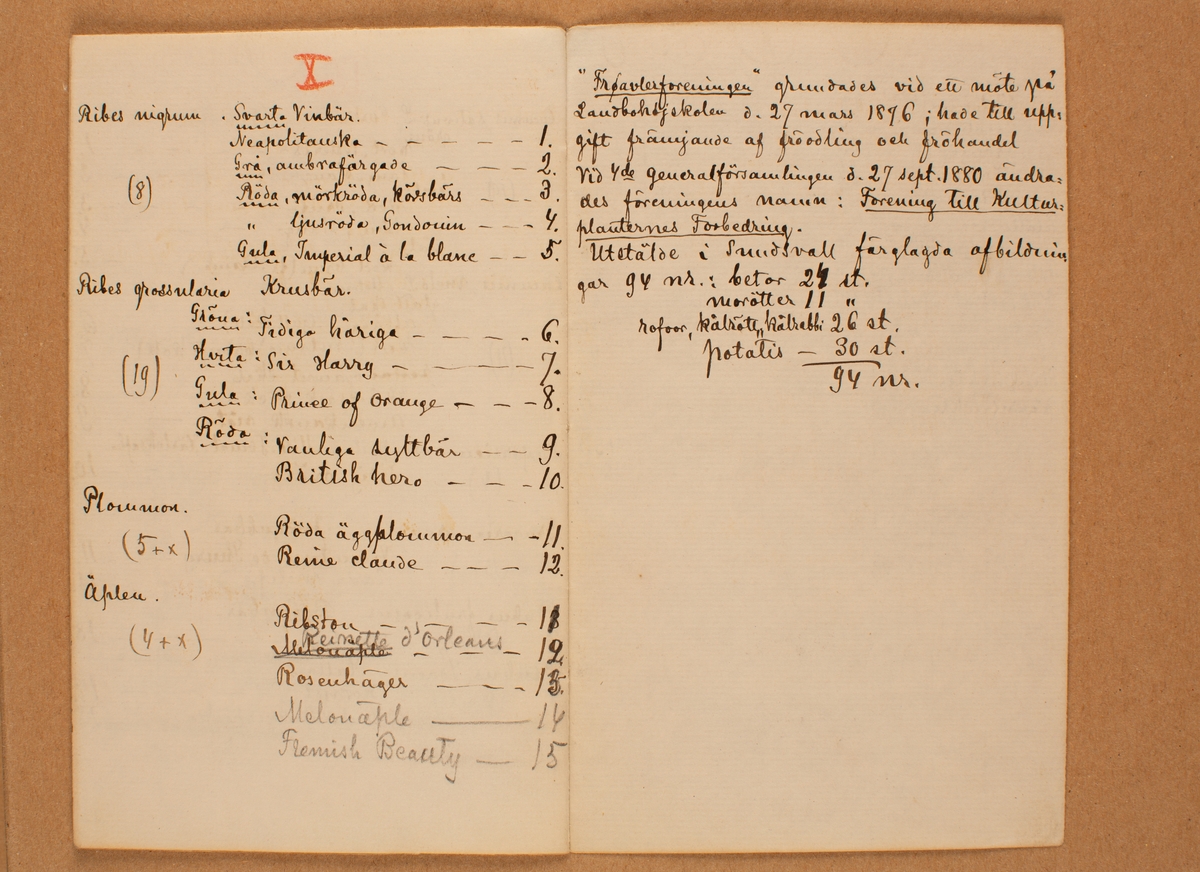 X
Ribes nigrum . Svarta Vinbär.
Neapolitanska - - - - - 1.
Grå, ambrafärgade - - - 2.
(8) Röda, mörkröda, körsbärs - - - 3.
" ljusröda, Gondouin - - - 4.
Gula, Imperial à la blanc - - 5.
Ribes grossularia Krusbär.
Gröna: Tidiga häriga - - - - 6.
(19) Hvita: Sir Harry - - - - 7.
Gula: Prince of Orange - - - 8.
Röda: Vanliga syltbär - - 9.
British hero - - - 10.
Plommon.
(5+x) Röda äggplommon - - 11.
Reine claude - - - - 12.
Äplen.
Ribston - - - - 11
(4+x) Reinette d'Orleans
Melonäple - - - 12
Rosenhäger - - - - 13.
Melonäple - 14
Flemish Beauty - 15
"Frøavlerforeningen" grundades vid ett möte på
Landbohöjskolen d. 27 mars 1876; hade till upp-
gift främjande af fröodling och fröhandel
Vid 4de generalförsamlingen d. 27 sept. 1880 ändra-
des föreningens namn: Forening till Kultur-
planternes Forbedring.
Utstälde i Sundsvall färglagda afbildnin-
gar 94 nr.: betor 27 st.
morötter 11 "
rofvor, kålrött., kålrabbi 26 st.
potatis - 30 st.
94 nr.